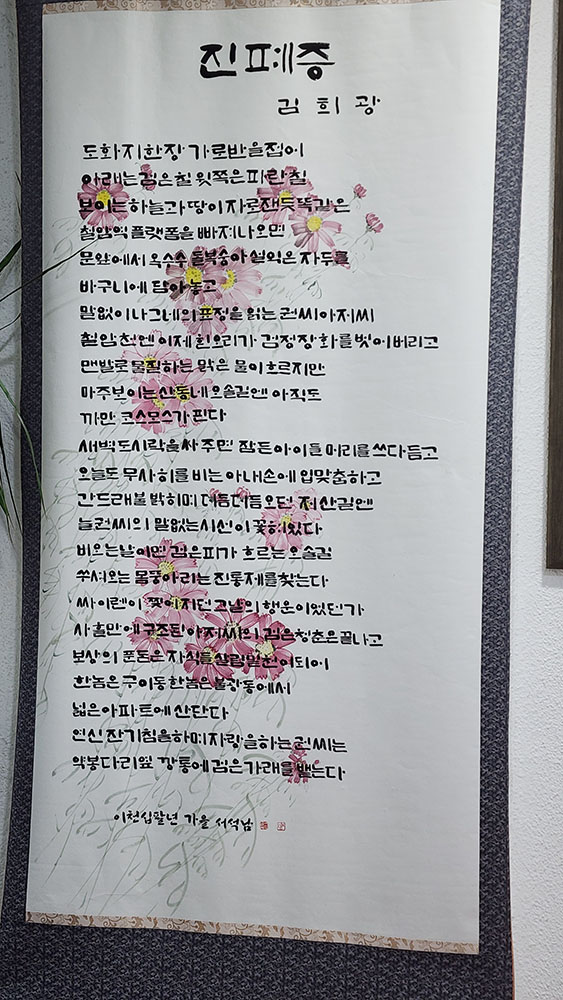 진폐증
김희광
도화지 한장 가로 반을 접어
아래는 검은 칠 윗쪽은 파란 칠
보이는 하늘과 땅이 자로 잰듯 똑같은
철암역 플랫폼을 빠져 나오면
문앞에서 옥수수 돌복숭아 설익은 자두를
바구니에 담아 놓고
말없이 나그네의 표정을 읽는 권씨 아저씨
철암천엔 이제 흰오리가 검정장화를 벗어 버리고
맨발로 물질하는 맑은 물이 흐르지만
마주보이는 산동네 오솔길엔 아직도
까만 코스모스가 핀다
새벽 도시락을 싸 주면 잠든 아이들 머리를 쓰다듬고
오늘도 무사히를 비는 아내 손에 입맞춤하고
간드래불 밝히며 더듬더듬 오던 저 산길엔
늘 권씨의 말없는 시선이 꽂혀 있다
비오는 날이면 검은 피가 흐르는 오솔길
쑤셔오는 몸뚱아리는 진통제를 찾는다
싸이렌이 찢어지던 그날의 행운이었던가
사흘만에 구조된 아저씨의 검은 청춘은 끝나고
보상의 푼돈은 자식들 살림밑천이 되어
한놈은 구이동 한놈은 불광동에서
넓은 아파트에 산단다
연신 잔기침을 하며 자랑을 하는 권씨는
약봉다리 옆 깡통에 검은 가래를 뱉는다
이천십팔년 가을 서석남